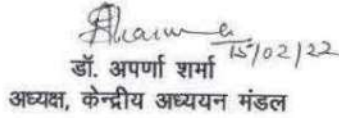 Sharma
15/02/22
डॉ. अपर्णा शर्मा
अध्यक्ष, केन्द्रीय अध्ययन मंडल